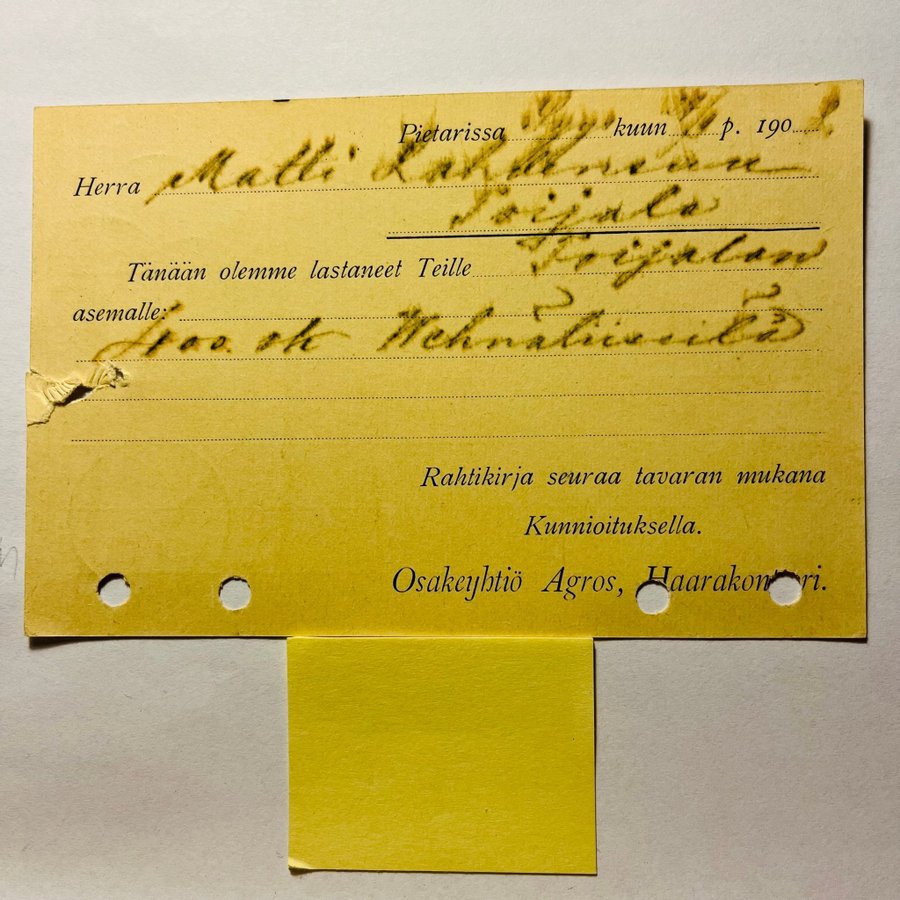 Pietarissa kuun p. 190
Herra Matti Lahdensuu
Toijala
Tänään olemme lastaneet Teille Toijalan
asemalle:
400. ok Wehnäliissilä
Rahtikirja seuraa tavaran mukana
Kunnioituksella.
Osakeyhtiö Agros, Haarakonttori.